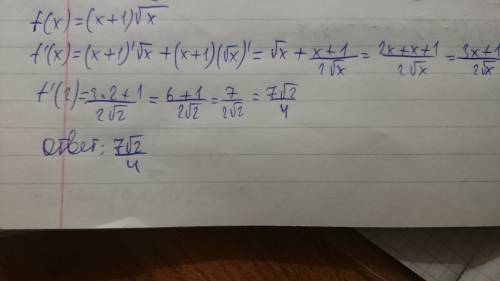 f(x)=(x+1)√x
f'(x)=(x+1)'√x+(x+1)(√x)'=√x+(x+1)/(2√x)=(2x+x+1)/(2√x)=(3x+1)/(2√x)
f'(2)=(3·2+1)/(2√2)=(6+1)/(2√2)=7/(2√2)=7√2/4
Ответ: 7√2/4